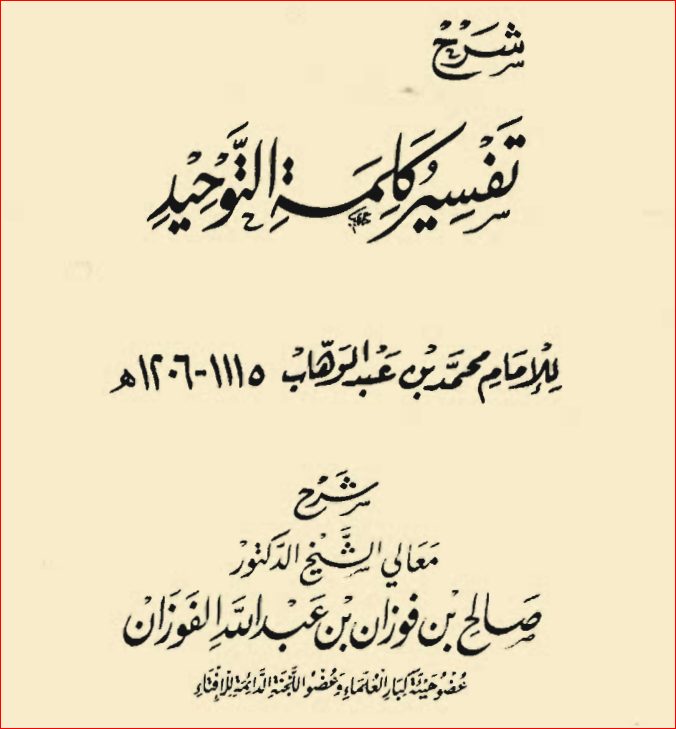 شَرْحُ
تَفْسِيرُ كَلِمَةِ التَّوْحِيدِ
لِلْإِمَامِ مُحَمَّد بْنِ عَبْدِ الوَهَّابْ ١١١٥-١٢٠٦ه
شَرْحُ
مَعَالي الشَّيْخ الدَّكتورْ
صَالِح بْن فَوْزَان بْنِ عَبْدِ اللهِ الفَوْزَانْ
عُضْو هَيْئَة كِبَارِ العُلَمَاءِ وَعُضْو اللَّجْنَةِ الدَّائِمَةِ لِلْإِفْتَاءِ